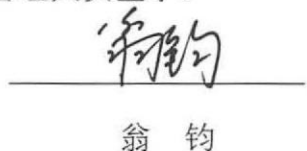 翁钧
翁 钧